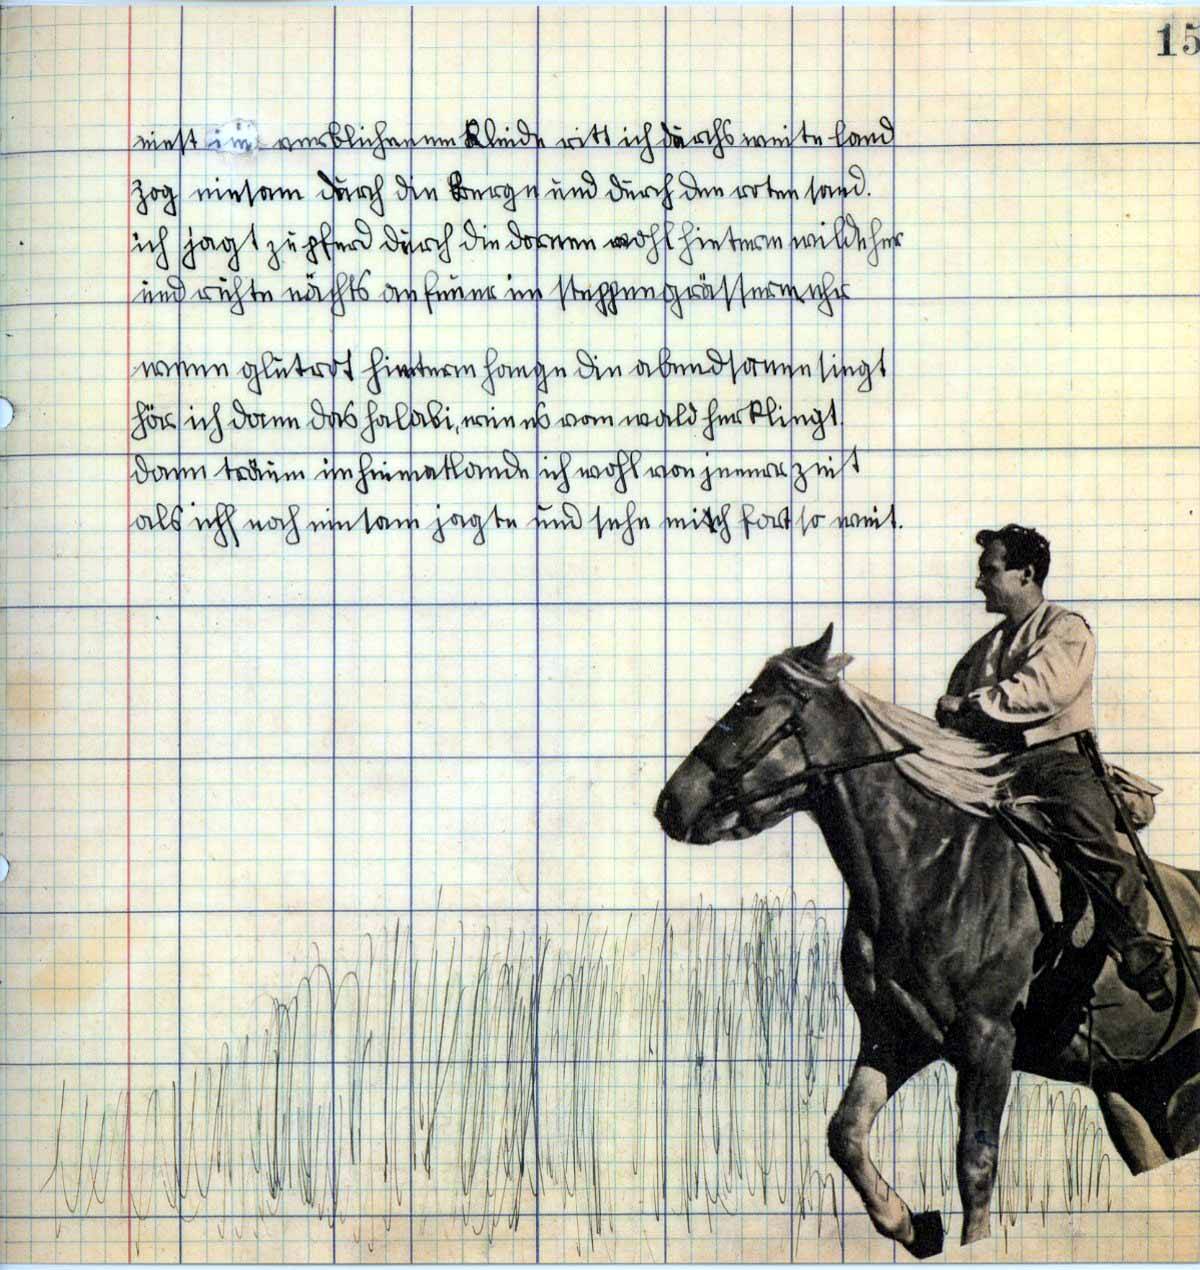 15
einst im verblichenem Kleide ritt ich durchs weite land
zog einsam durch die Berge und durch den roten sand.
ich jagt zu pferd durch die dornen wohl hinterm wilde her
und ruhte nächts am feuer im steppengrässermehr
wenn glutrot hinterm hange die abendsonne singt
hör ich dann das halali, wie es vom wald her klingt.
dann träum im heimatlande ich wohl von jener zeit
als ich noch einsam jagte und sehe mich fort so weit.